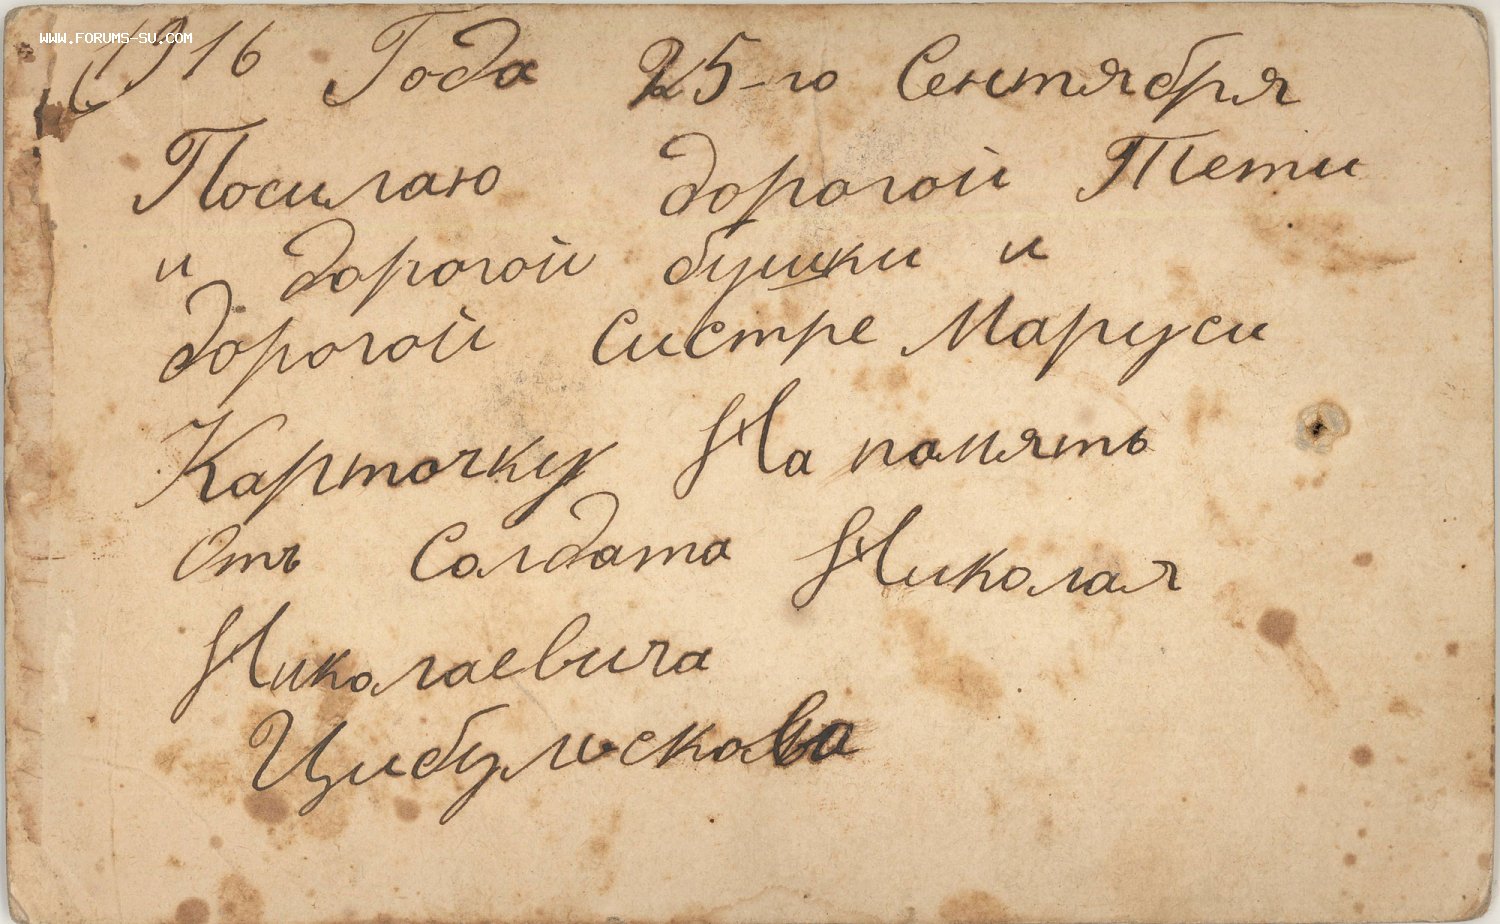 WWW.FORUMS-SU.COM
1916 Года 25-го Сентября
Посилаю дорогой Тети
и дорогой бушки и
дорогой систре Маруси
Карточку На помять
Отъ Солдата Николая
Николаевича
Цибульскова